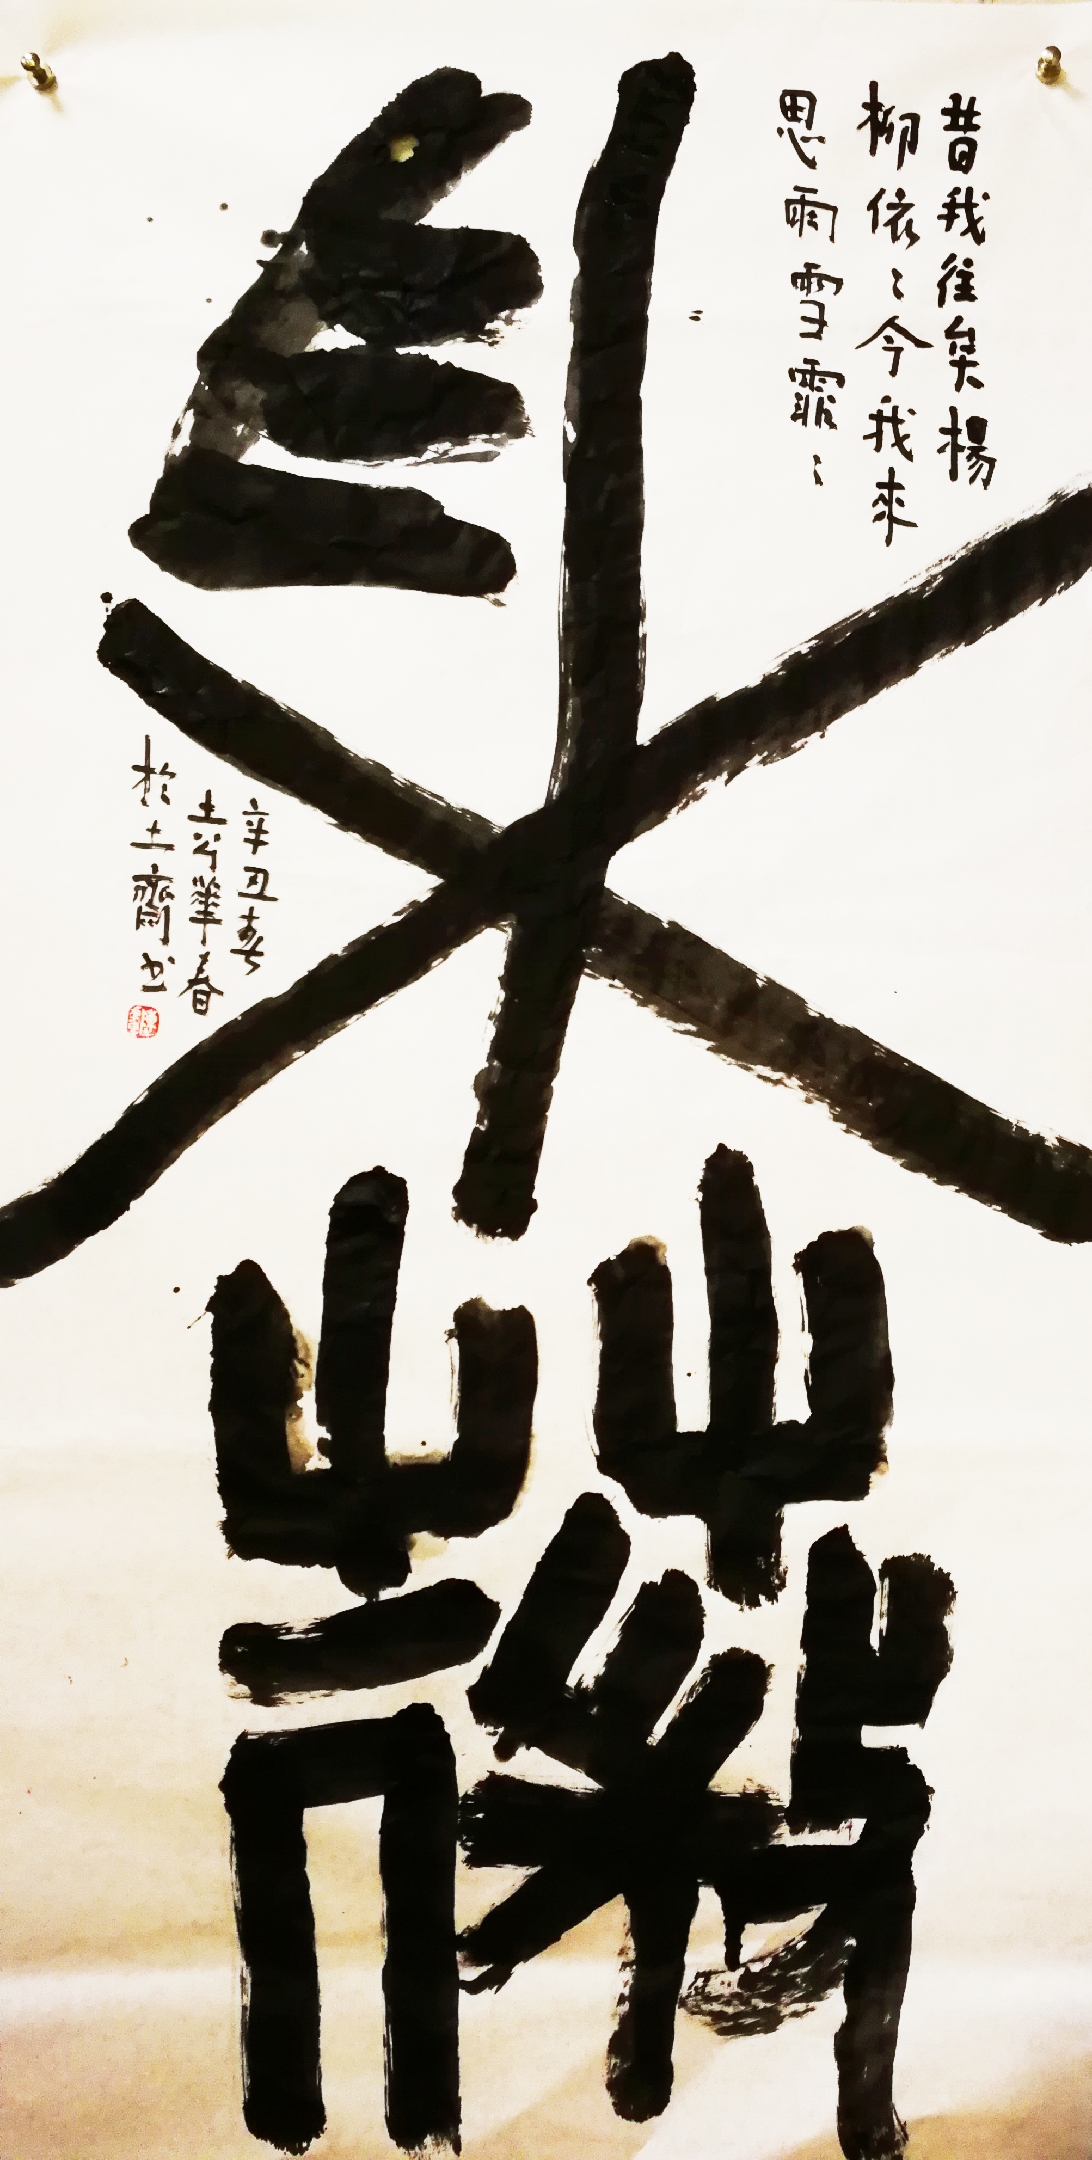 采薇
昔我往矣楊
柳依〻今我來
思雨雪霏〻
辛丑春
華春
於土齋书